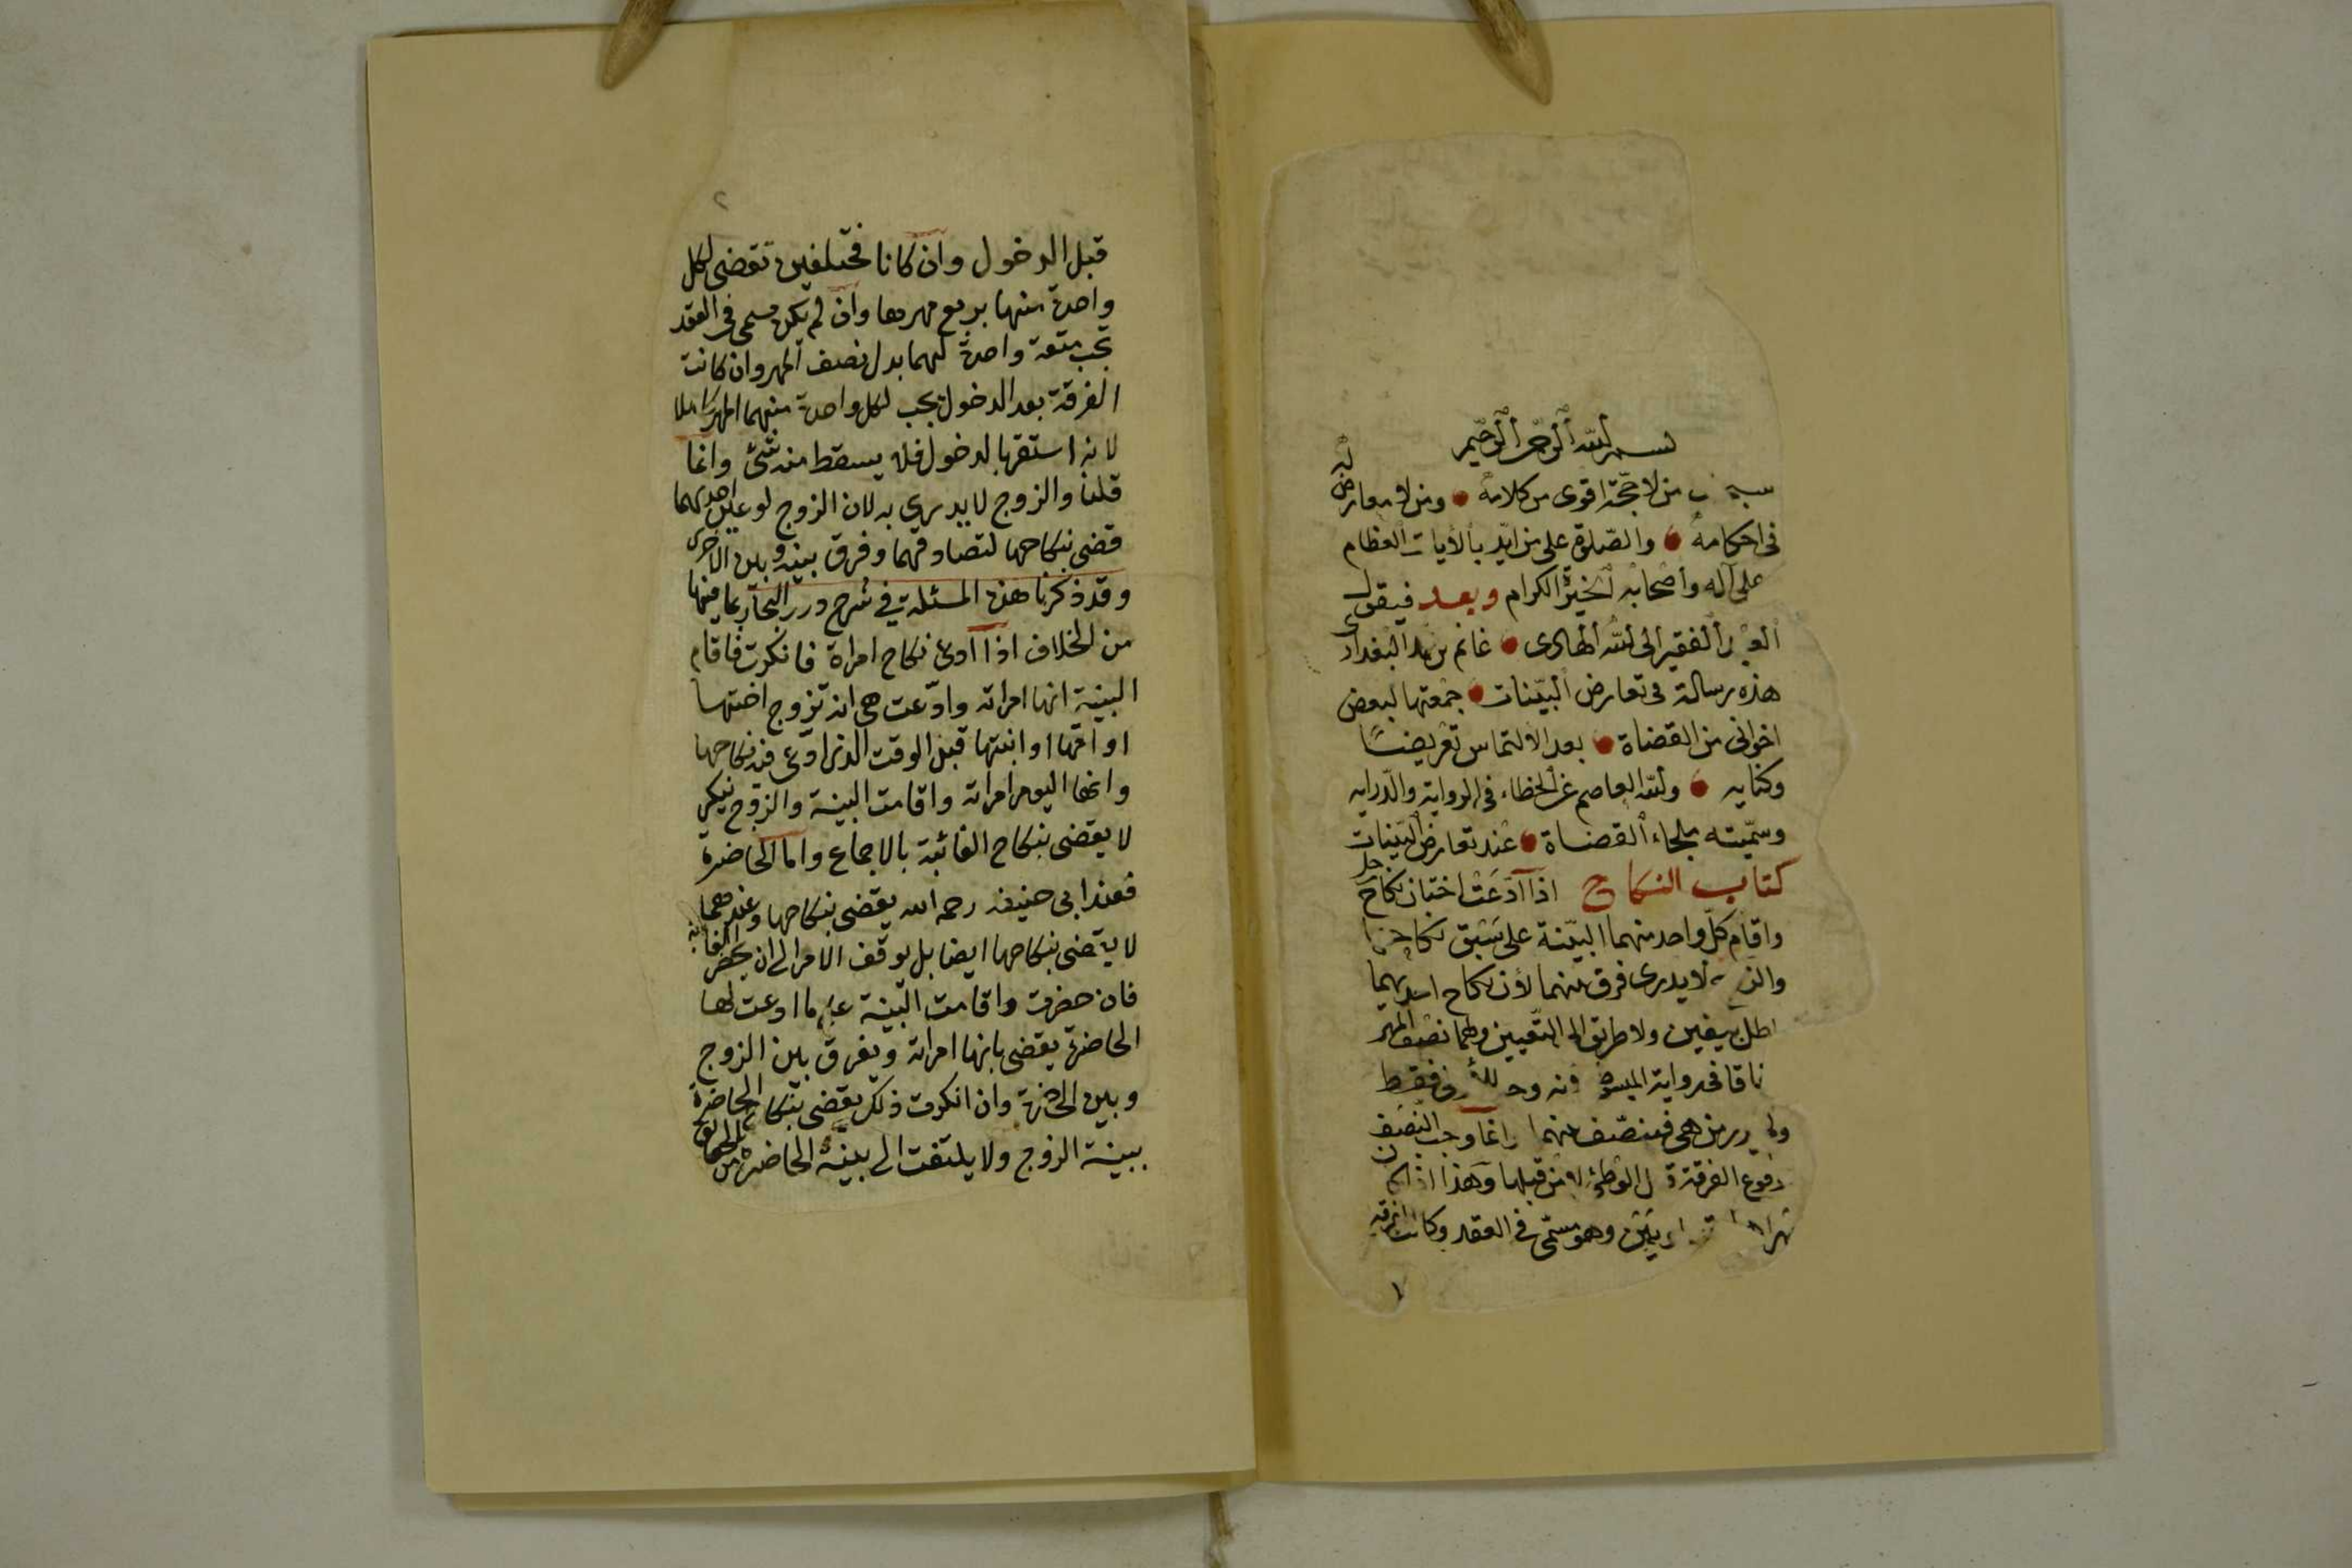 بسم الله الرحمن الرحيم
من لا حجة اقوى من كلامه ومن لا معارض له
فى احكامه والصلوة على من ايد بالآيات العظام
على آله واصحابه الخيرة الكرام وبعد فيقول
الفقير الى الله الهادى غانم بن محمد البغدادى
هذه رسالة فى تعارض البينات جمعتها لبعض
اخوانى من القضاة بعد الالتماس تعريضا
وكنايه والله العاصم عن الخطاء فى الرواية والدرايه
وسميته ملجاء القضاة عند تعارض البينات
كتاب النكاح اذا ادعت اختان نكاح رجل
واقام كل واحد منهما البينة على سبق نكاحها
لا يدرى فرق بينهما لان نكاح احديهما
بيقين ولا طريق الى التعيين ولهما نصف المهر
فى رواية
من هى فينصف بينهما وانما وجب النصف
الفرقة قبل الوطئ لا من قبلها وهذا اذا كان
وهو مسمى فى العقد وكانت الفرقة
١
٢
قبل الدخول وان كانا مختلفين تقضى لكل
واحدة منها بربع مهرها وان لم يكن مسمى فى العقد
تجب متعة واحدة لهما بدل نصف المهر وان كانت
الفرقة بعد الدخول يجب لكل واحدة منهما المهر كاملا
لانه استقر بالدخول فلا يسقط منه شئ وانما
قلنا والزوج لا يدرى به لان الزوج لو عين احديهما
قضى بنكاحها لتصادقهما وفرق بينه وبين الاخرى
وقد ذكرنا هذه المسئلة فى شرح درر البحار بما فيها
من الخلاف اذا ادعى نكاح امراة فانكرت فاقام
البينة انها امراته وادعت هى انه تزوج اختها
او امها او ابنتها قبل الوقت الذى ادعى فيه نكاحها
وانها اليوم امراته واقامت البينة والزوج ينكر
لا يقضى بنكاح الغائبة بالاجماع واما الحاضرة
فعند ابى حنيفه رحمه الله يقضى بنكاحها وعندهما
لا يقضى بنكاحها ايضا بل يوقف الامر الى ان يحضر الغائبة
فان حضرت واقامت البينة على ما ادعت لها
الحاضرة يقضى بانها امراته ويفرق بين الزوج
وبين الحاضرة وان انكرت ذلك يقضى بنكاح الحاضرة
ببينة الزوج ولا يلتفت الى بينة الحاضرة من